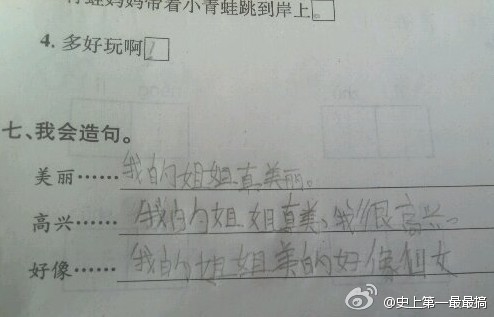 青蛙妈妈带着小青蛙跳到岸上。
4. 多好玩啊!
七、我会造句。
美丽……我的姐姐真美丽。
高兴……我的姐姐真美,我很高兴。
好像……我的姐姐美的好像仙女
@史上第一最最搞